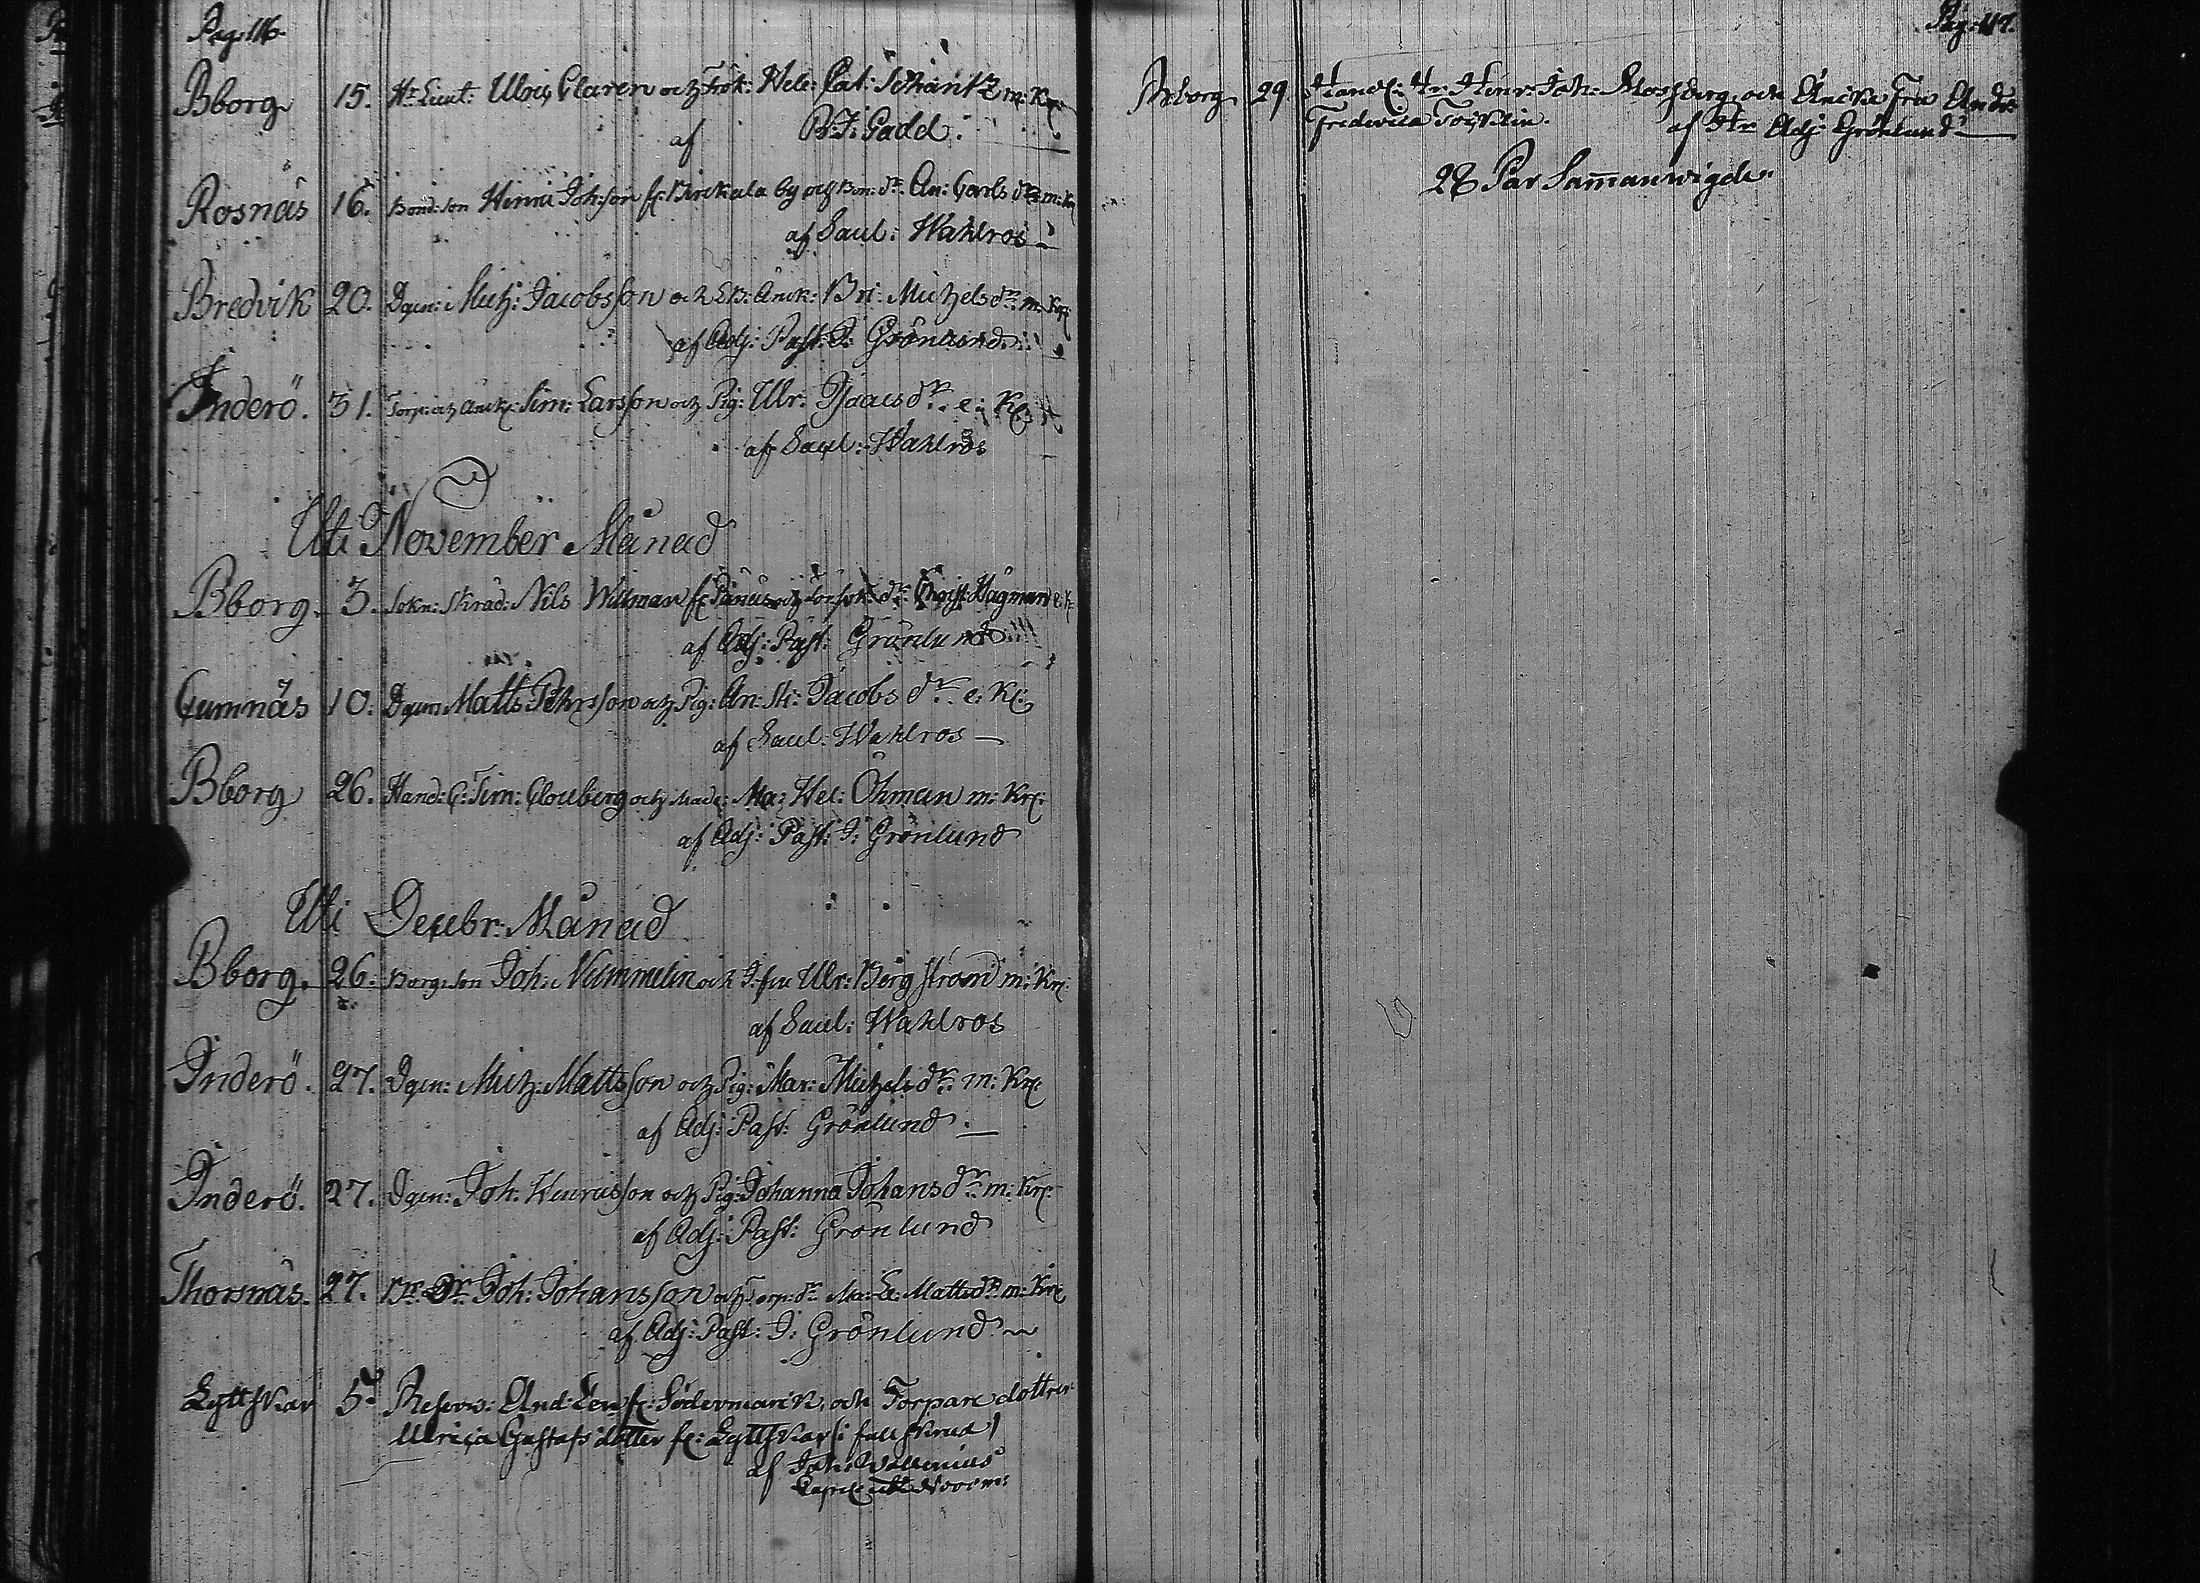 Pag: 116.
Bborg 15. Hr Lieut: Ulric Claren och Frök: Hele: Cat: Schantz m: Kr:
af B: J: Gadd.
Rosnäs 16. Bond: son Henric Joh:son fr: Birckala by och Bon: dr An: Carls dr m: Kr
af Saul: Wahlros
Bredvik 20. Dgen: Mich: Jacobsson och Enck: Bri: Michelsdr m: Kr:
af Adj: Past: J: Grönlund
Inderö. 31. Torp: och Anck: Sim: Larsson och Pig: Ulr: Isaacs dr e: Kr:
af Saul: Wahlros
Uti November Månad
Bborg. 3. Sokn: Skräd: Nils Widman fr: och dr Christ: Hägman e: K:
af Adj: Past: Grönlund
Gumnäs 10. Dgen: Matts Pehrsson och Pig: An: St: Jacobs dr e: Kr:
af Saul: Wahlros
Bborg 26. Hand: G: Sim: Clouberg och Mad: Ma: Hel: Öhman m: Kr:
af Adj: Past: J: Grönlund
Uti Decbr: Månad
Bborg. 26. Borg: son Joh: Nummelin och J:fru Ulr: Bergström m: Kr:
af Saul: Wahlros
Inderö. 27. Dgen: Mich: Mattsson och Pig: Mar: Michels dr m: Kr:
af Adj: Past: Grönlund
Inderö. 27. Dgen: Joh: Henricsson och Pig: Johanna Johans dr m: Kr:
af Adj: Past: Grönlund
Thorsnäs. 27. Joh: Johansson och Torp: dr Ma: L: Mattsdr m: Kr:
af Adj: Past: J: Grönlund
Lyttskär 5. Reserv: And: Len fr: Södermark, och Torpare dotter
Ulrica Gustafs dotter fr: Lyttskär
af Joh: Wallenius
Pag: 117.
Bborg 29. Handl: Hr Henr: Joh: Moseberg och Enckefru And:
Fredrica Tocklin. af Hr Adj: Grönlund
28 Par Sammanwigde.